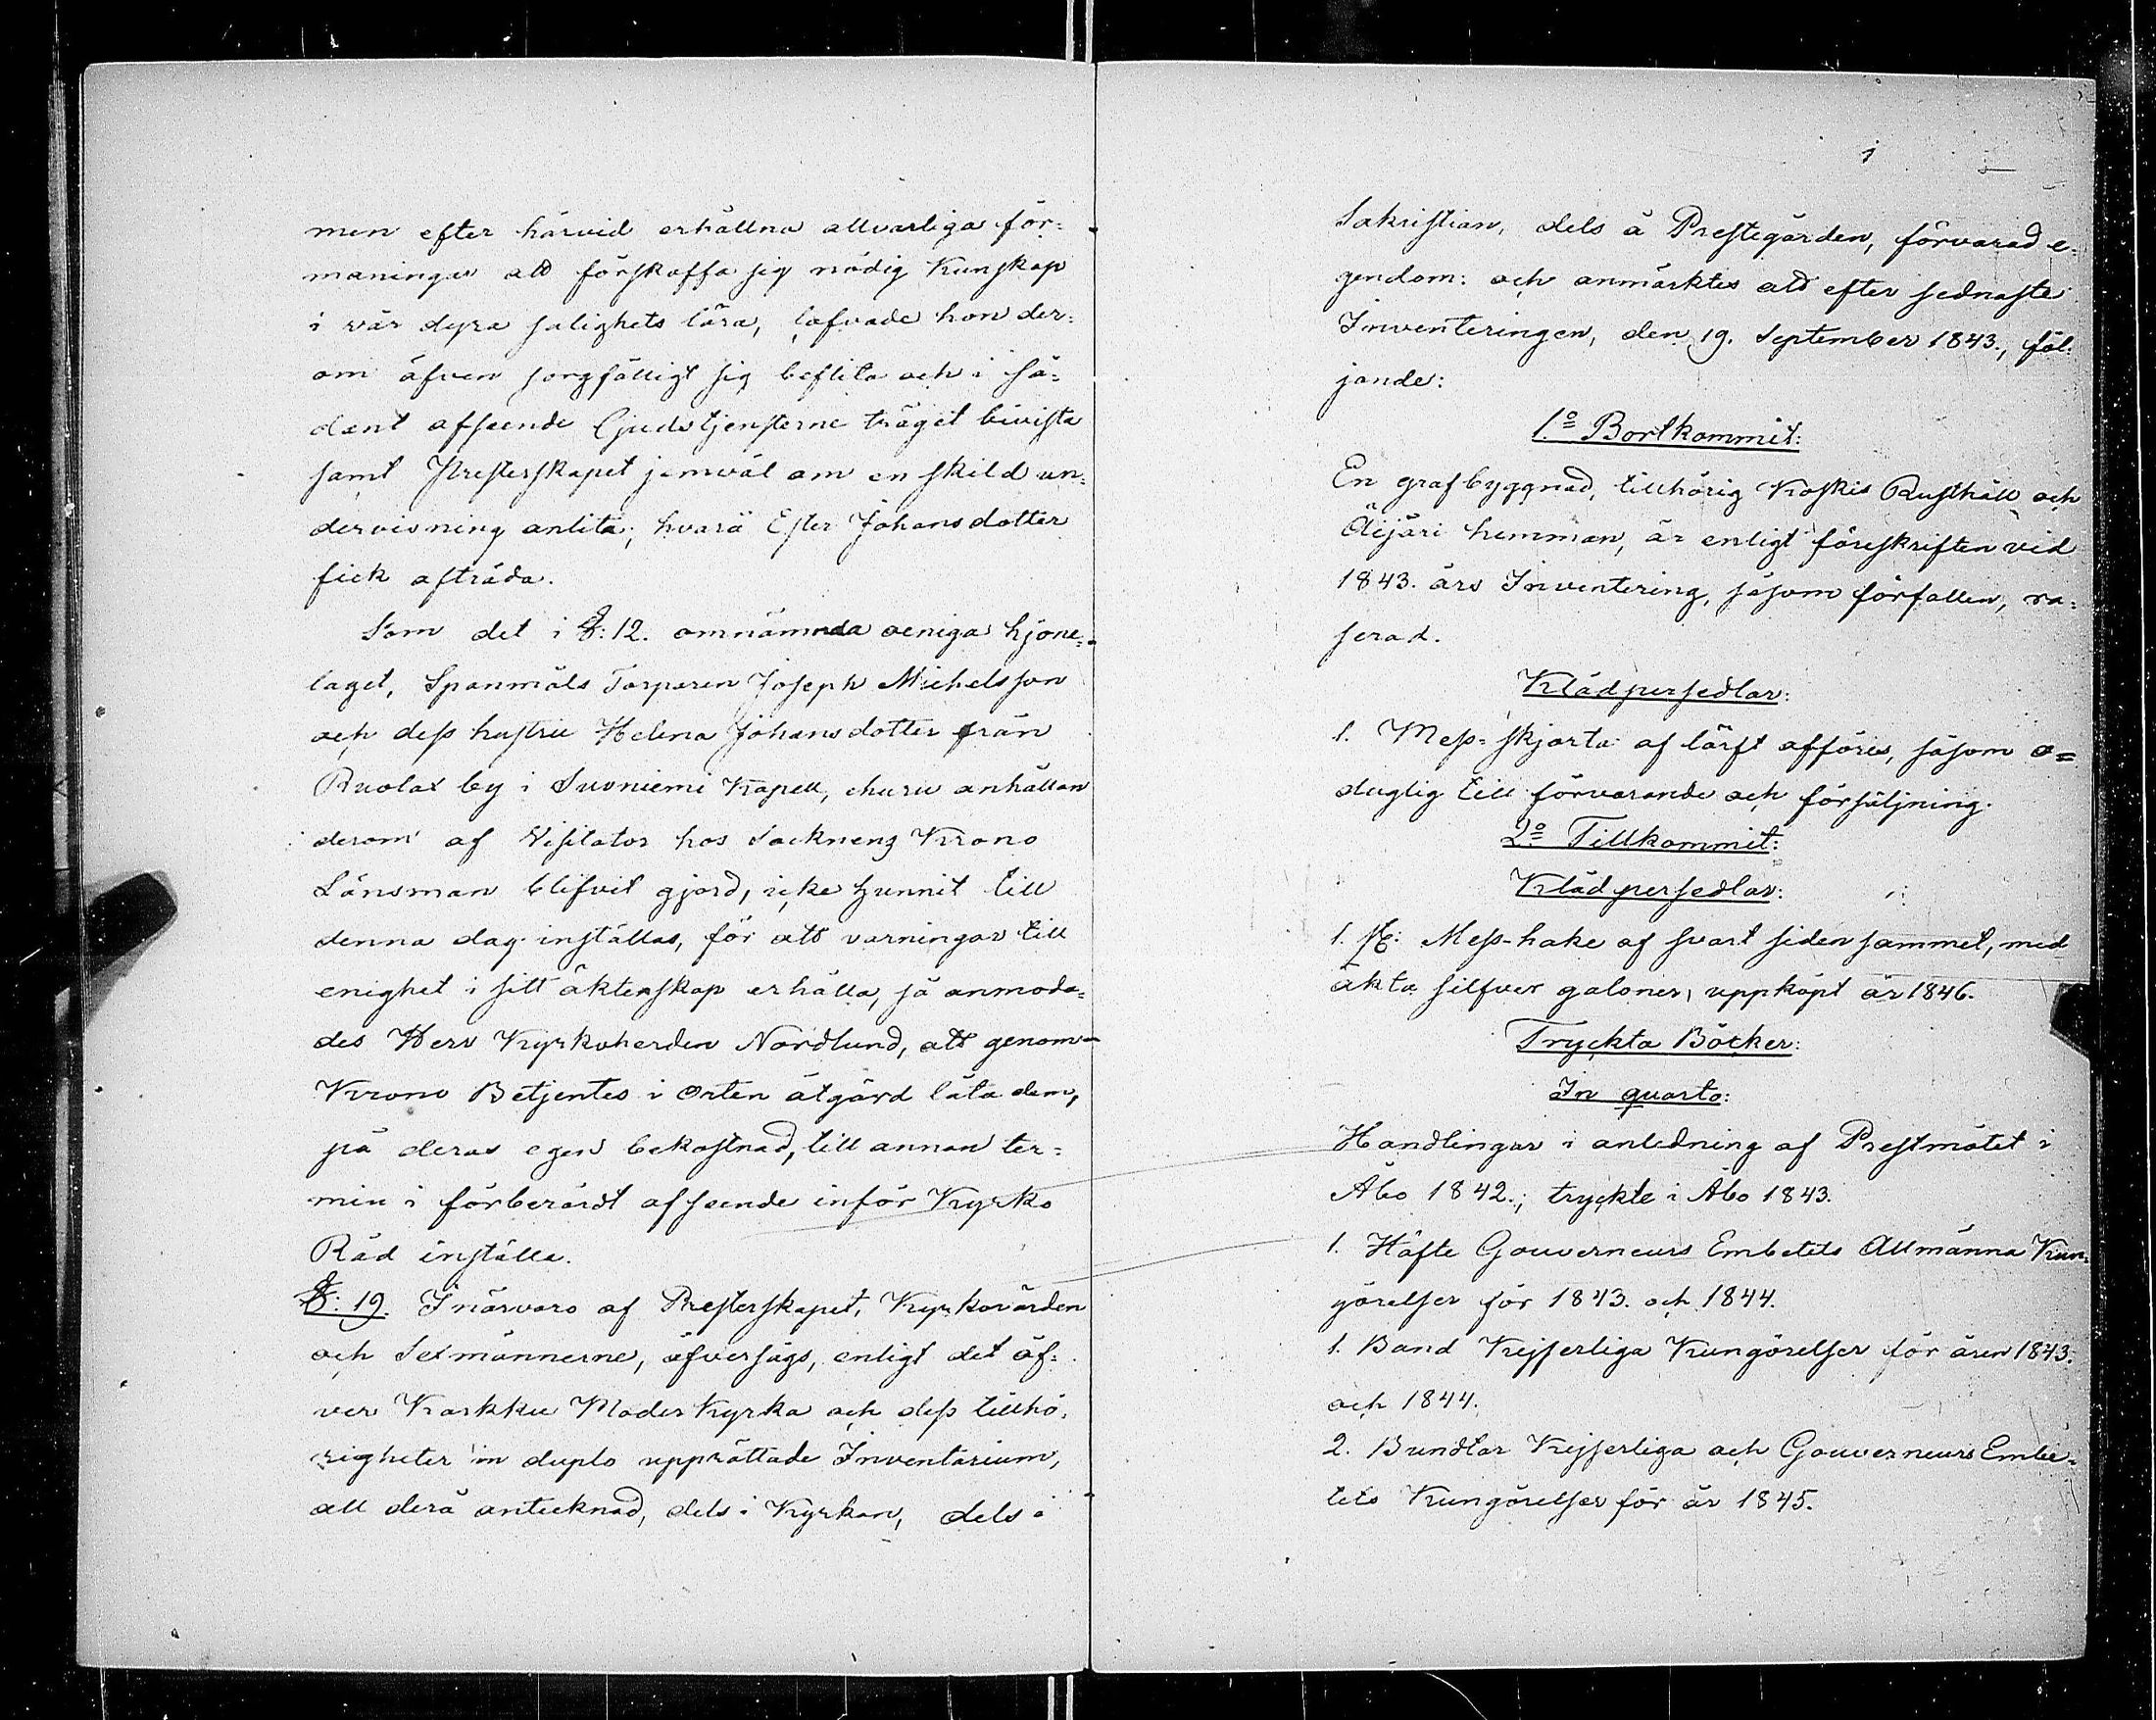 men efter härvid erhållna allvarliga för=
maningar att förskaffa sig nödig Kunskap
i vår dyra salighets lära, lofvade hon der=
om äfven sorgfälligt sig beflita och i så=
dant afseende Gudstjensterne träget bivista
samt Presterskapet jemväl om en skild un=
dervisning anlita; hvarå Ester Johansdotter
fick afträda.
Som det i §: 12. omnämnda oeniga hjone=
laget, Spanmåls Torparen Joseph Michelsson
och dess hustru Helena Johansdotter från
Ruolax by i Suoniemi Kapell, ehuru anhållan
derom af Visitator hos Socknens Krono
Länsman blifvit gjord, icke hunnit till
denna dag inställas, för att varningar till
enighet i sitt äktenskap erhålla, så anmoda=
des Herr Kyrkoherden Nordlund, att genom
Krono Betjentes i Orten åtgärd låta dem,
på deras egen bekostnad, till annan ter=
min i förberördt afseende inför Kyrko
Råd inställa.
§: 19. I närvaro af Presterskapet, Kyrkovärden
och Sexmännerne, öfversågs, enligt det öf=
ver Karkku Moder Kyrka och dess tillhö=
righeter in duplo upprättade Inventarium,
all derå antecknad, dels i Kyrkan, dels i
1
Sakristian, dels å Prestegården, förvarad e=
gendom: och anmärktes att efter sednaste
Inventeringen, den 19. September 1843., föl=
jande:
1.o Bortkommit:
En grafbyggnad, tillhörig Koskis Rusthåll och
Äijäri hemman, är enligt föreskriften vid
1843. års Inventering, såsom förfallen, ra=
serad.
Klädpersedlar:
1. Mess-skjorta af lärft afföres, såsom o=
duglig till förvarande och försäljning.
2.o Tillkommit:
Klädpersedlar:
1. st: Mess-hake af svart siden sammet, med
äkta silfver galoner, uppköpt år 1846.
Tryckta Böcker:
In quarto:
Handlingar i anledning af Prestmötet i
Åbo 1842.; tryckte i Åbo 1843.
1. Häfte Gouverneurs Embetets Allmänna Kun=
görelser för 1843. och 1844.
1. Band Kejserliga Kungörelser för åren 1843.
och 1844.
2. Bundtar Kejserliga och Gouverneurs Embe=
tets Kungörelser för år 1845.